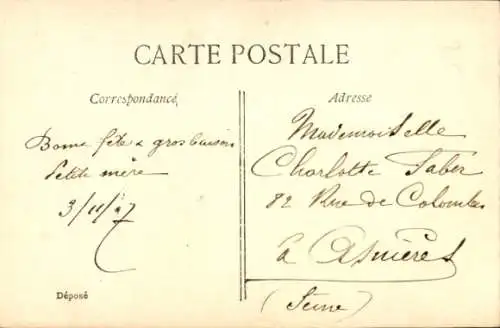 CARTE POSTALE
Correspondance
Adresse
Bonne fête & gros baisers
Petite mère
3/11/07
Mademoiselle
Charlotte Faber
82 Rue de Colombes
à Asnières
(Seine)
Déposé